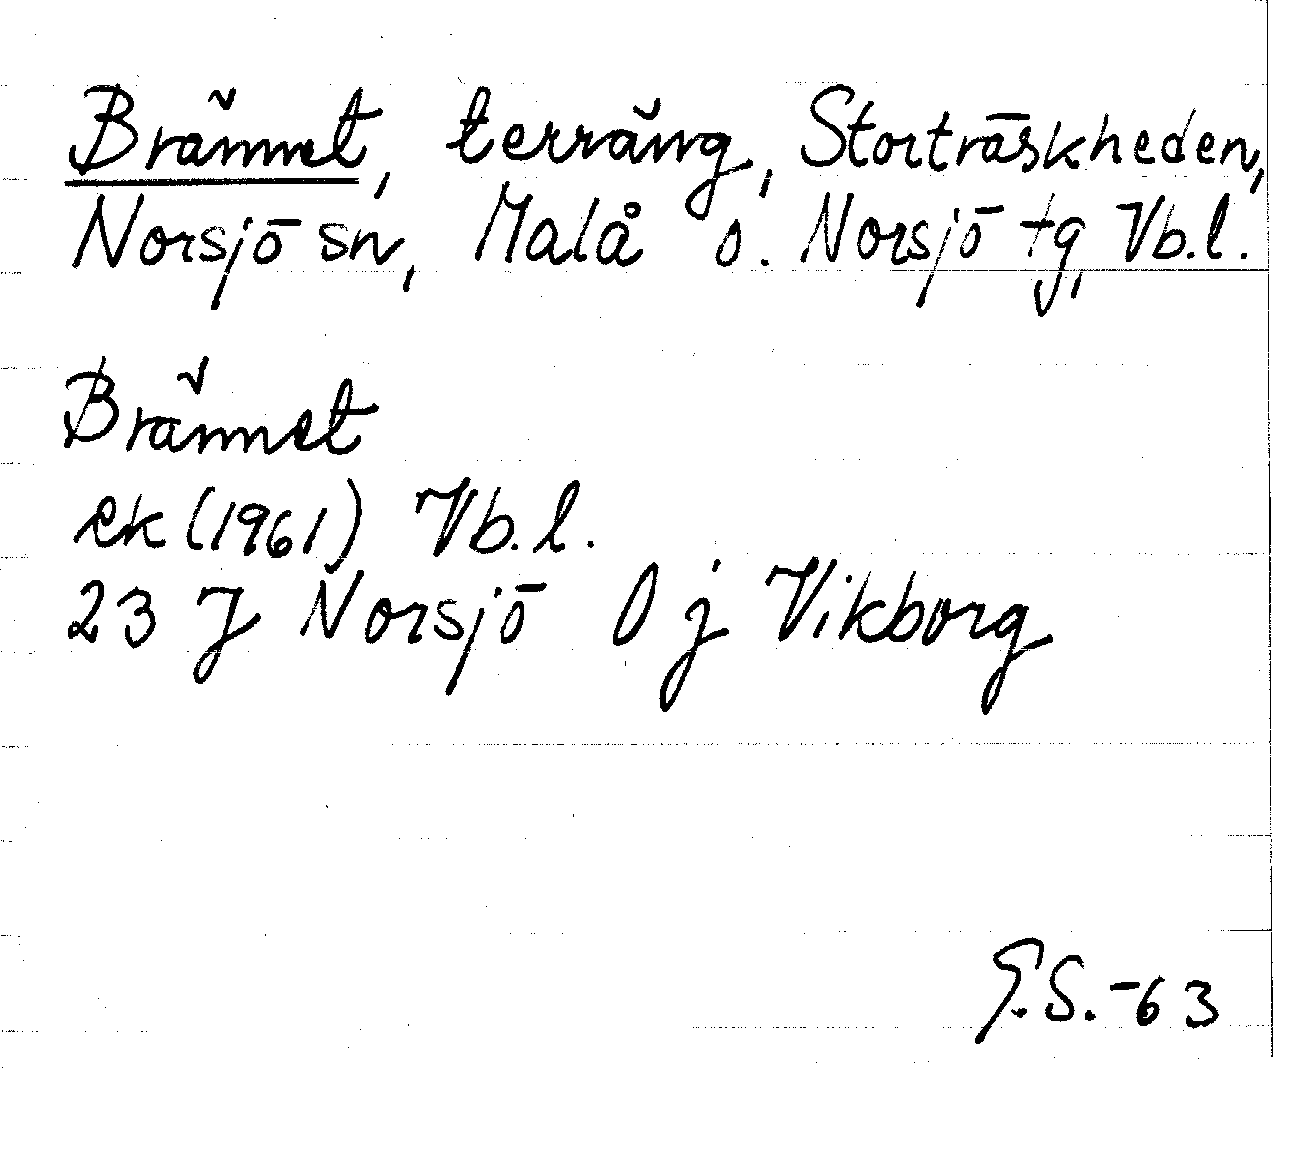 Brännet, terräng, Storträskheden,
Norsjö sn, Malå o. Norsjö tg, Vb.l.
Brännet
ek (1961) Vb.l.
23 J Norsjö 0 j Vikborg
G.S.-63